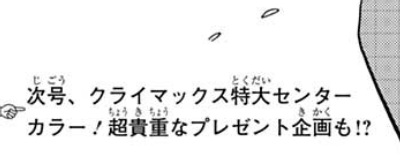 次号、クライマックス特大センター
カラー!超貴重なプレゼント企画も!?